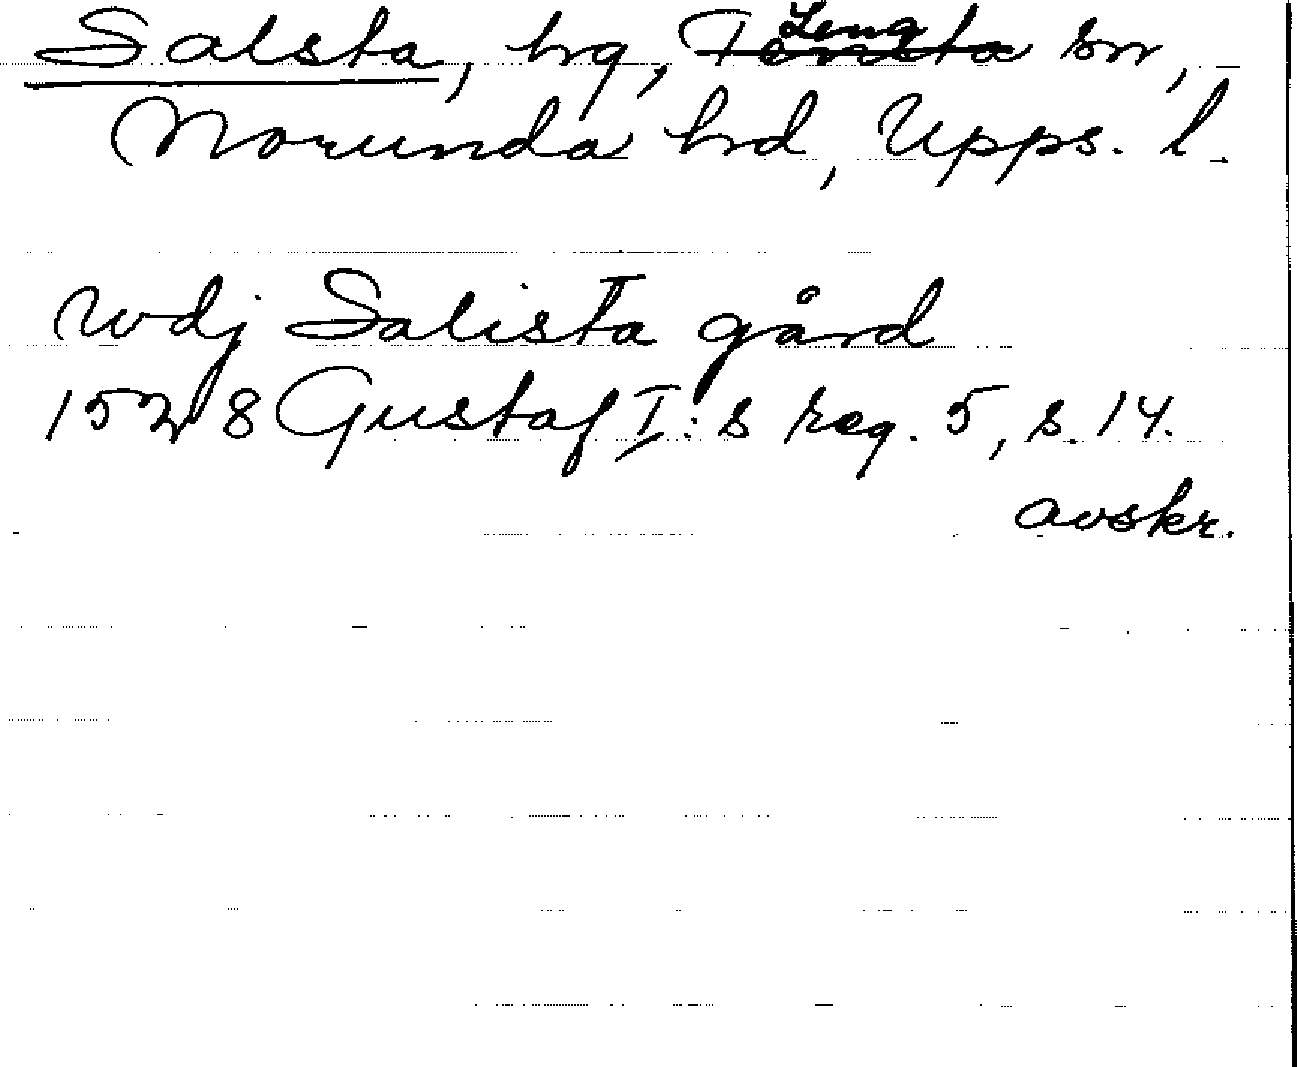 Salsta, hg, Tensta Leng sn,
Norunda hd, Upps. l.
wdj Salista gård
1528 Gustaf I:s reg. 5, s. 14.
avskr.